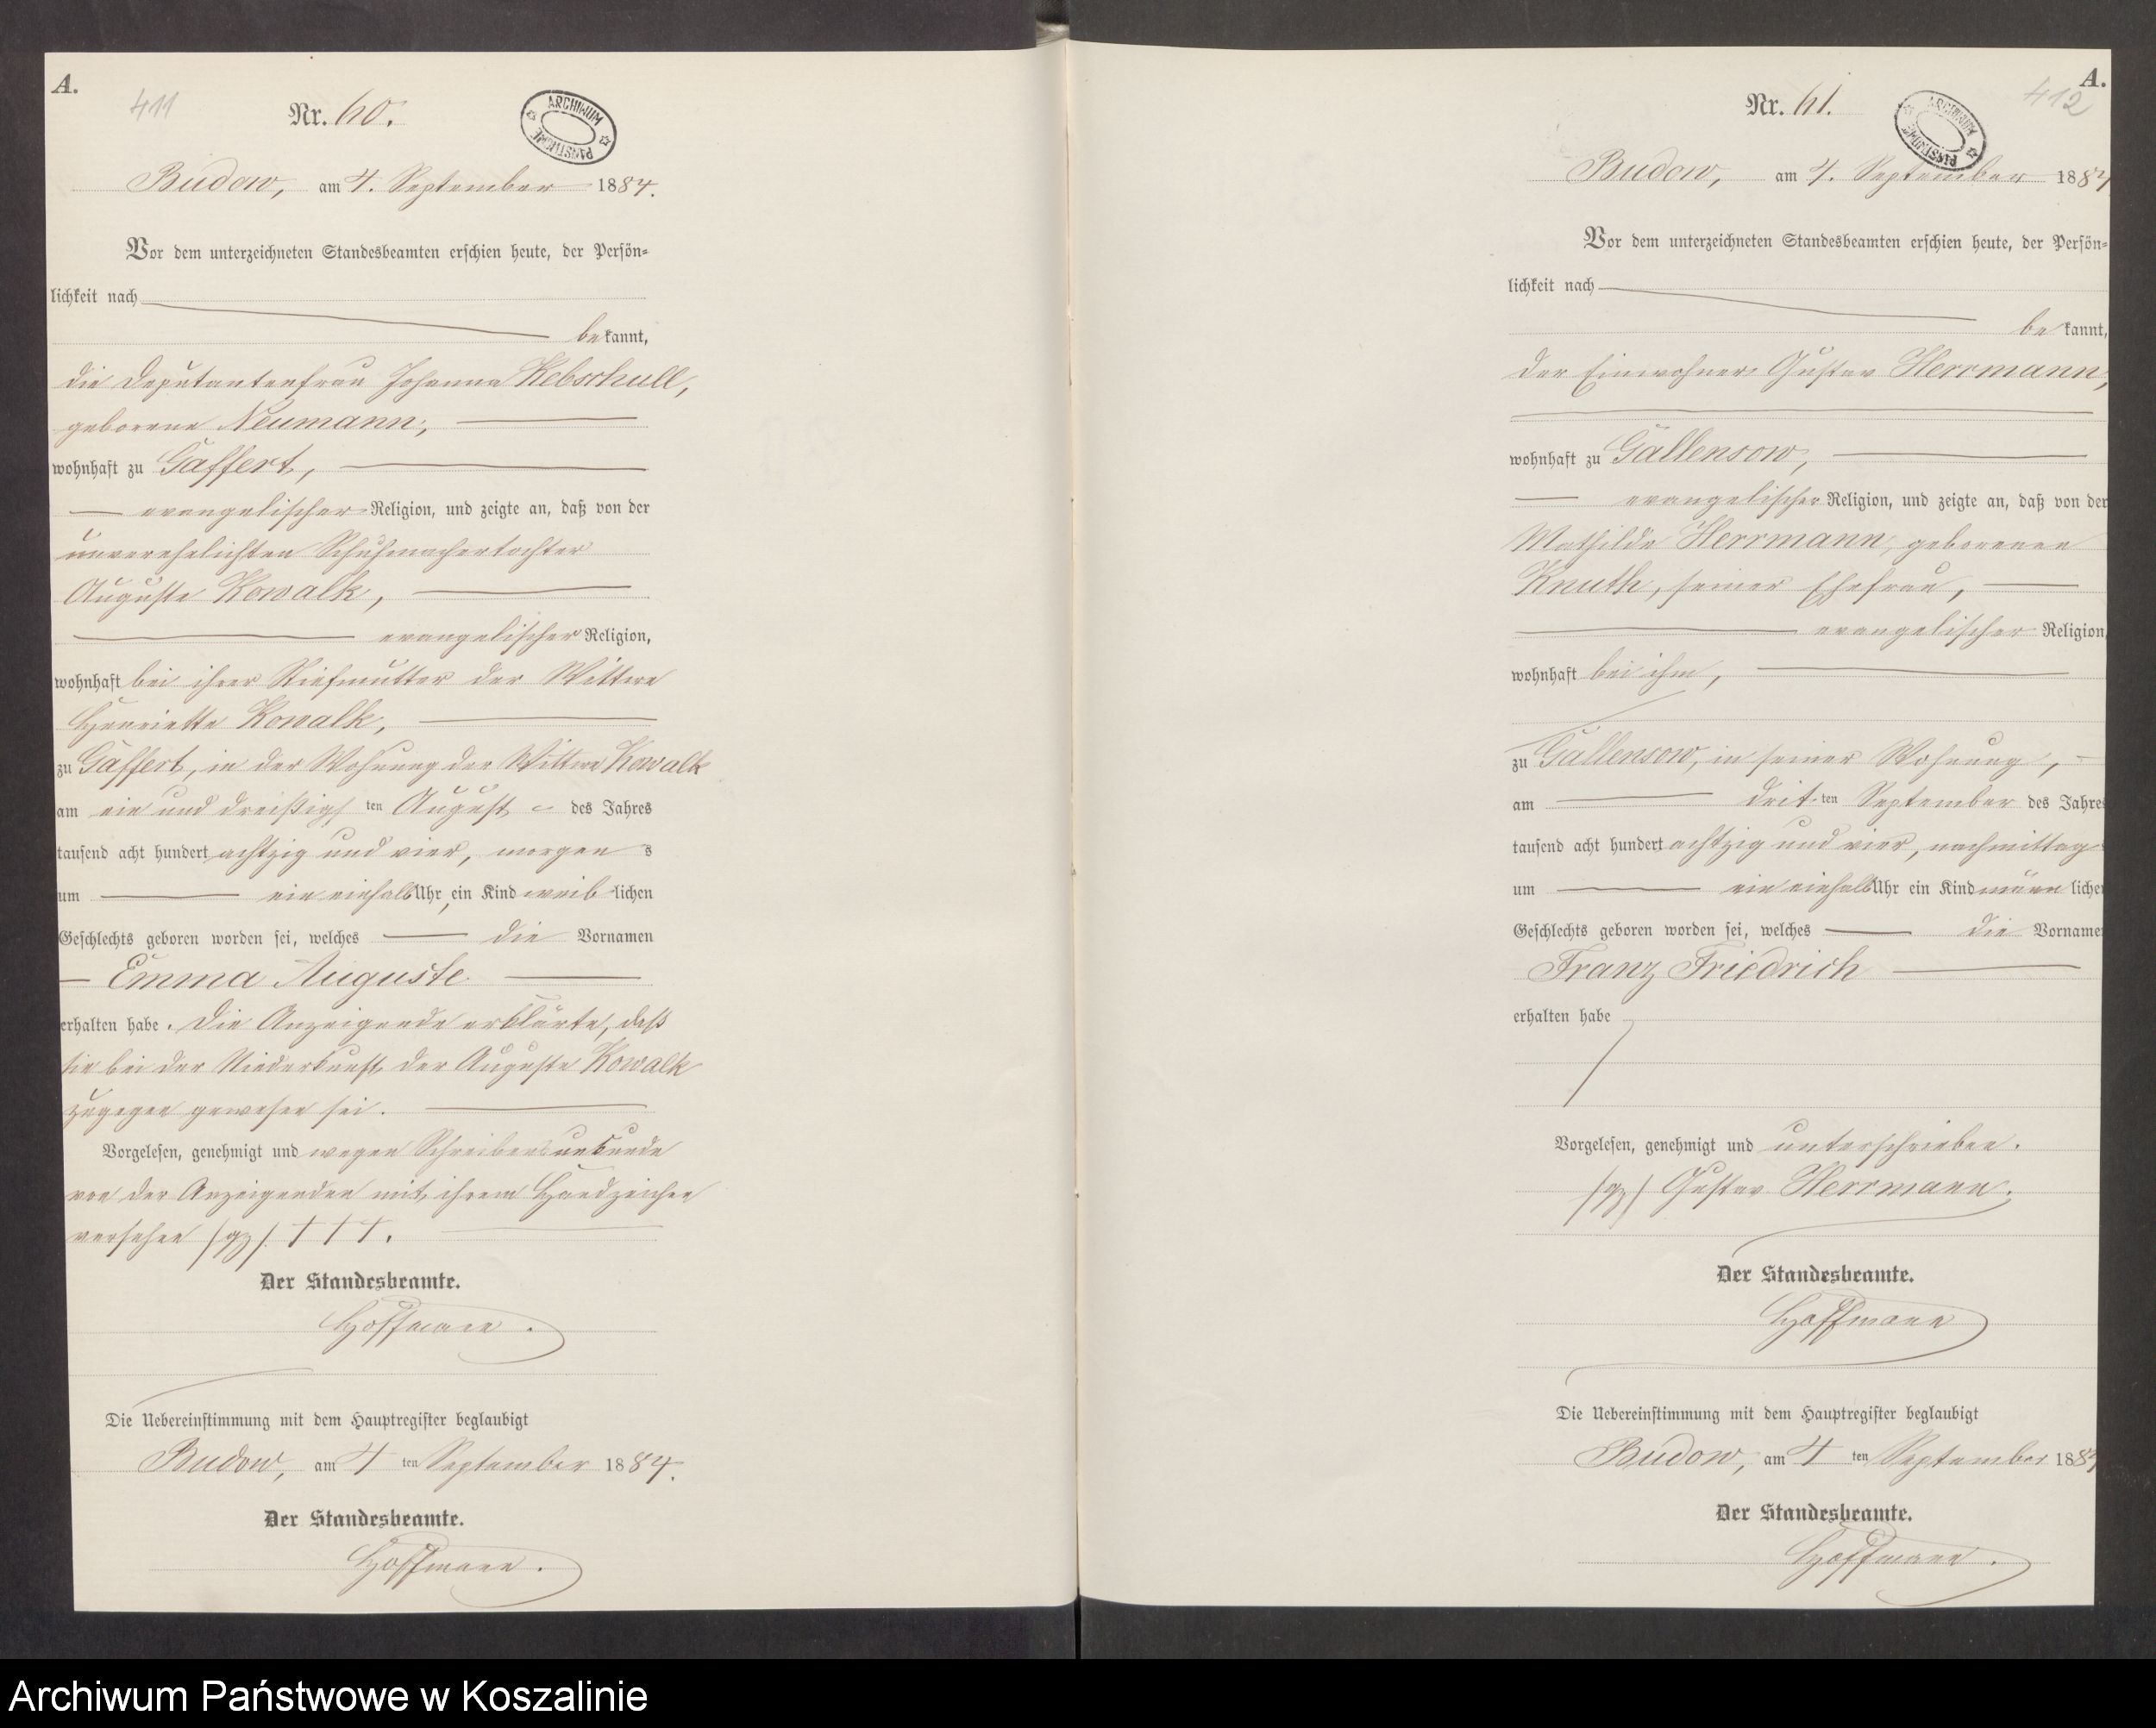 A.
411
Nr. 60.
ARCHIWUM PAŃSTWOWE
Budow, am 4. September 1884.
Vor dem unterzeichneten Standesbeamten erschien heute, der Persön=
lichkeit nach
bekannt,
die Deputantenfrau Johanna Kebschull,
geborene Neumann,
wohnhaft zu Gaffert,
evangelischer Religion, und zeigte an, daß von der
unverehelichten Schuhmachertochter
Auguste Kowalk,
evangelischer Religion,
wohnhaft bei ihrer Stiefmutter der Wittwe
Henriette Kowalk,
zu Gaffert, in der Wohnung der Wittwe Kowalk
am ein und dreißigsten August des Jahres
tausend acht hundert achtzig und vier, morgens
um ein einhalb Uhr, ein Kind weiblichen
Geschlechts geboren worden sei, welches die Vornamen
Emma Auguste
erhalten habe. Die Anzeigende erklärte, daß
sie bei der Niederkunft der Auguste Kowalk
zugegen gewesen sei.
Vorgelesen, genehmigt und wegen Schreibensunkunde
von der Anzeigenden mit ihrem Handzeichen
versehen (gz) †††.
Der Standesbeamte.
Hoffmann.
Die Uebereinstimmung mit dem Hauptregister beglaubigt
Budow, am 4ten September 1884.
Der Standesbeamte.
Hoffmann.
A.
412
Nr. 61.
ARCHIWUM PAŃSTWOWE
Budow, am 4. September 1884
Vor dem unterzeichneten Standesbeamten erschien heute, der Persön=
lichkeit nach
bekannt,
der Einwohner Gustav Herrmann,
wohnhaft zu Gallensow,
evangelischer Religion, und zeigte an, daß von der
Mathilde Herrmann, geborenen
Knuth, seiner Ehefrau,
evangelischer Religion,
wohnhaft bei ihm,
zu Gallensow, in seiner Wohnung,
am dritten September des Jahres
tausend acht hundert achtzig und vier, nachmittag
um ein einhalb Uhr ein Kind männlichen
Geschlechts geboren worden sei, welches die Vornamen
Franz Friedrich
erhalten habe
Vorgelesen, genehmigt und unterschrieben.
(gz) Gustav Herrmann.
Der Standesbeamte.
Hoffmann
Die Uebereinstimmung mit dem Hauptregister beglaubigt
Budow, am 4ten September 1884
Der Standesbeamte.
Hoffmann.
Archiwum Państwowe w Koszalinie